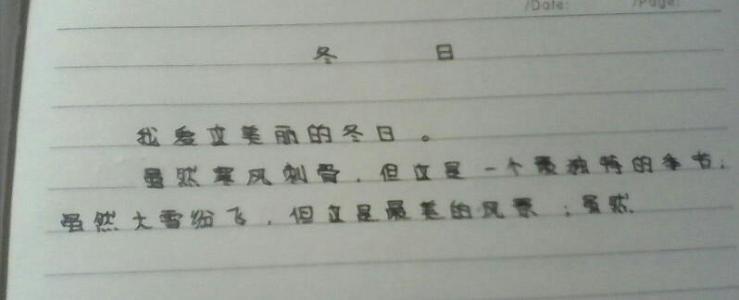 /Date: /Page:
冬 日
我爱这美丽的冬日。
虽然寒风刺骨,但这是一个最独特的季节;
虽然大雪纷飞,但这是最美的风景;虽然